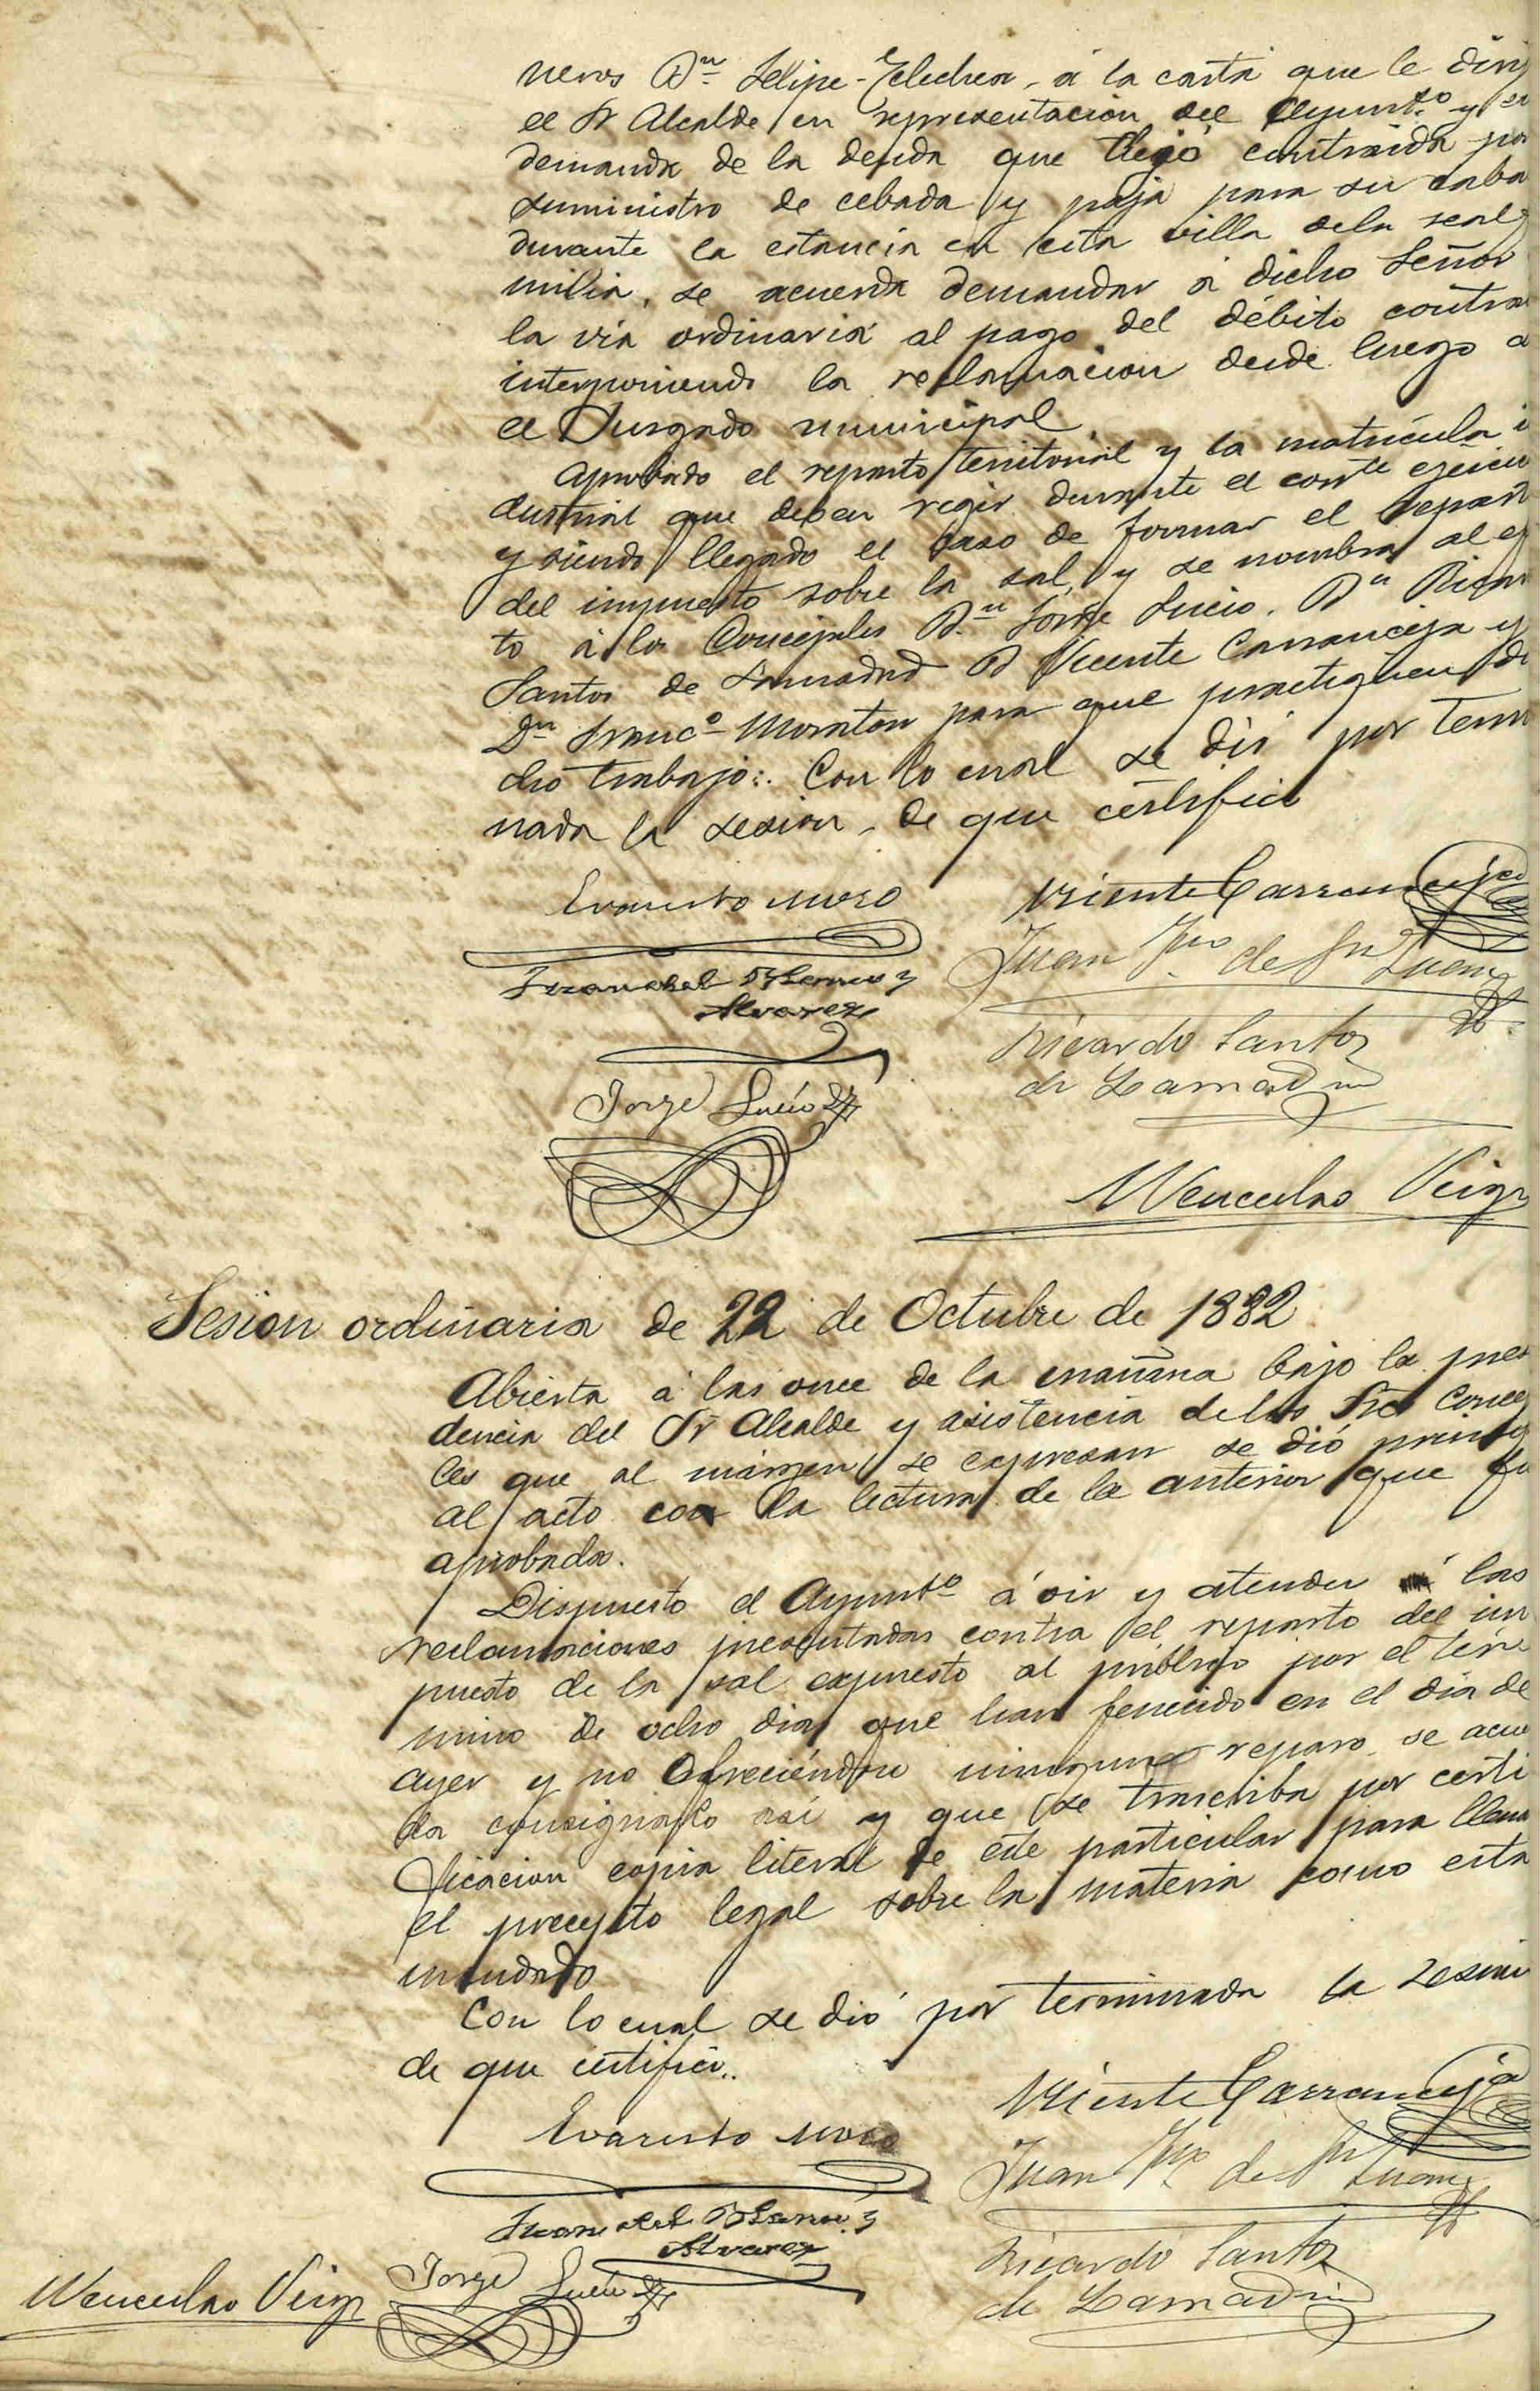 neros Dn Felipe - Telechea, á la carta que le diri
el Sr Alcalde en representacion del Ayunto y en
demanda de la deuda que dejó contraida por
suministro de cebada y paja para su caba
durante la estancia en esta villa dela real
milia, se acuerda demandar á dicho Señor
la via ordinaria al pago del débito contra
interponiendo la reclamacion desde luego a
el Jusgado municipal
Aprobado el reparto territorial y la matrícula i
dustrial que deben regir durante el corrte ejerci
y siendo llegado el caso de formar el repart
del impuesto sobre la sal, y se nombra al ef
to á los Concejales Dn Jorge Lucio, Dn Ricar
Santos de Lamadrid D Vicente Carranceja y
Dn Francº Moraton para que practiquen di
cho trabajo. Con lo cual se dió por termi
nada la sesion, de que certifico
Evaristo Moro
Vicente Carranceja
Juan de Sn Juan
Juan del Blanco y
Alvarez
Ricardo Santos
de Lamadrid
Jorge Lucio
Wenceslao Veiga
Sesion ordinaria de 22 de Octubre de 1882
Abierta á las once de la mañana bajo la presi
dencia del Sr Alcalde y asistencia de los Sres Conce
les que al márgen se expresan se dió princi
al acto con la lectura de la anterior que fu
aprobada.
Dispuesto el Ayunto á oir y atender á las
reclamaciones presentadas contra el reparto del im
puesto de la sal expuesto al público por el tér
mino de ocho dias que han fenecido en el dia de
ayer y no ofreciéndose ninguno reparo se acu
da consignarlo así y que se trascriba por certi
ficacion copia literal de este particular para llena
el precepto legal sobre la materia como esta
mandado
Con lo cual se dió por terminada la sesion
de que certifico..
Evaristo Moro
Vicente Carranceja
Juan de Sn Juan
Juan del Blanco y
Alvarez
Ricardo Santos
de Lamadrid
Jorge Lucio
Wenceslao Veiga